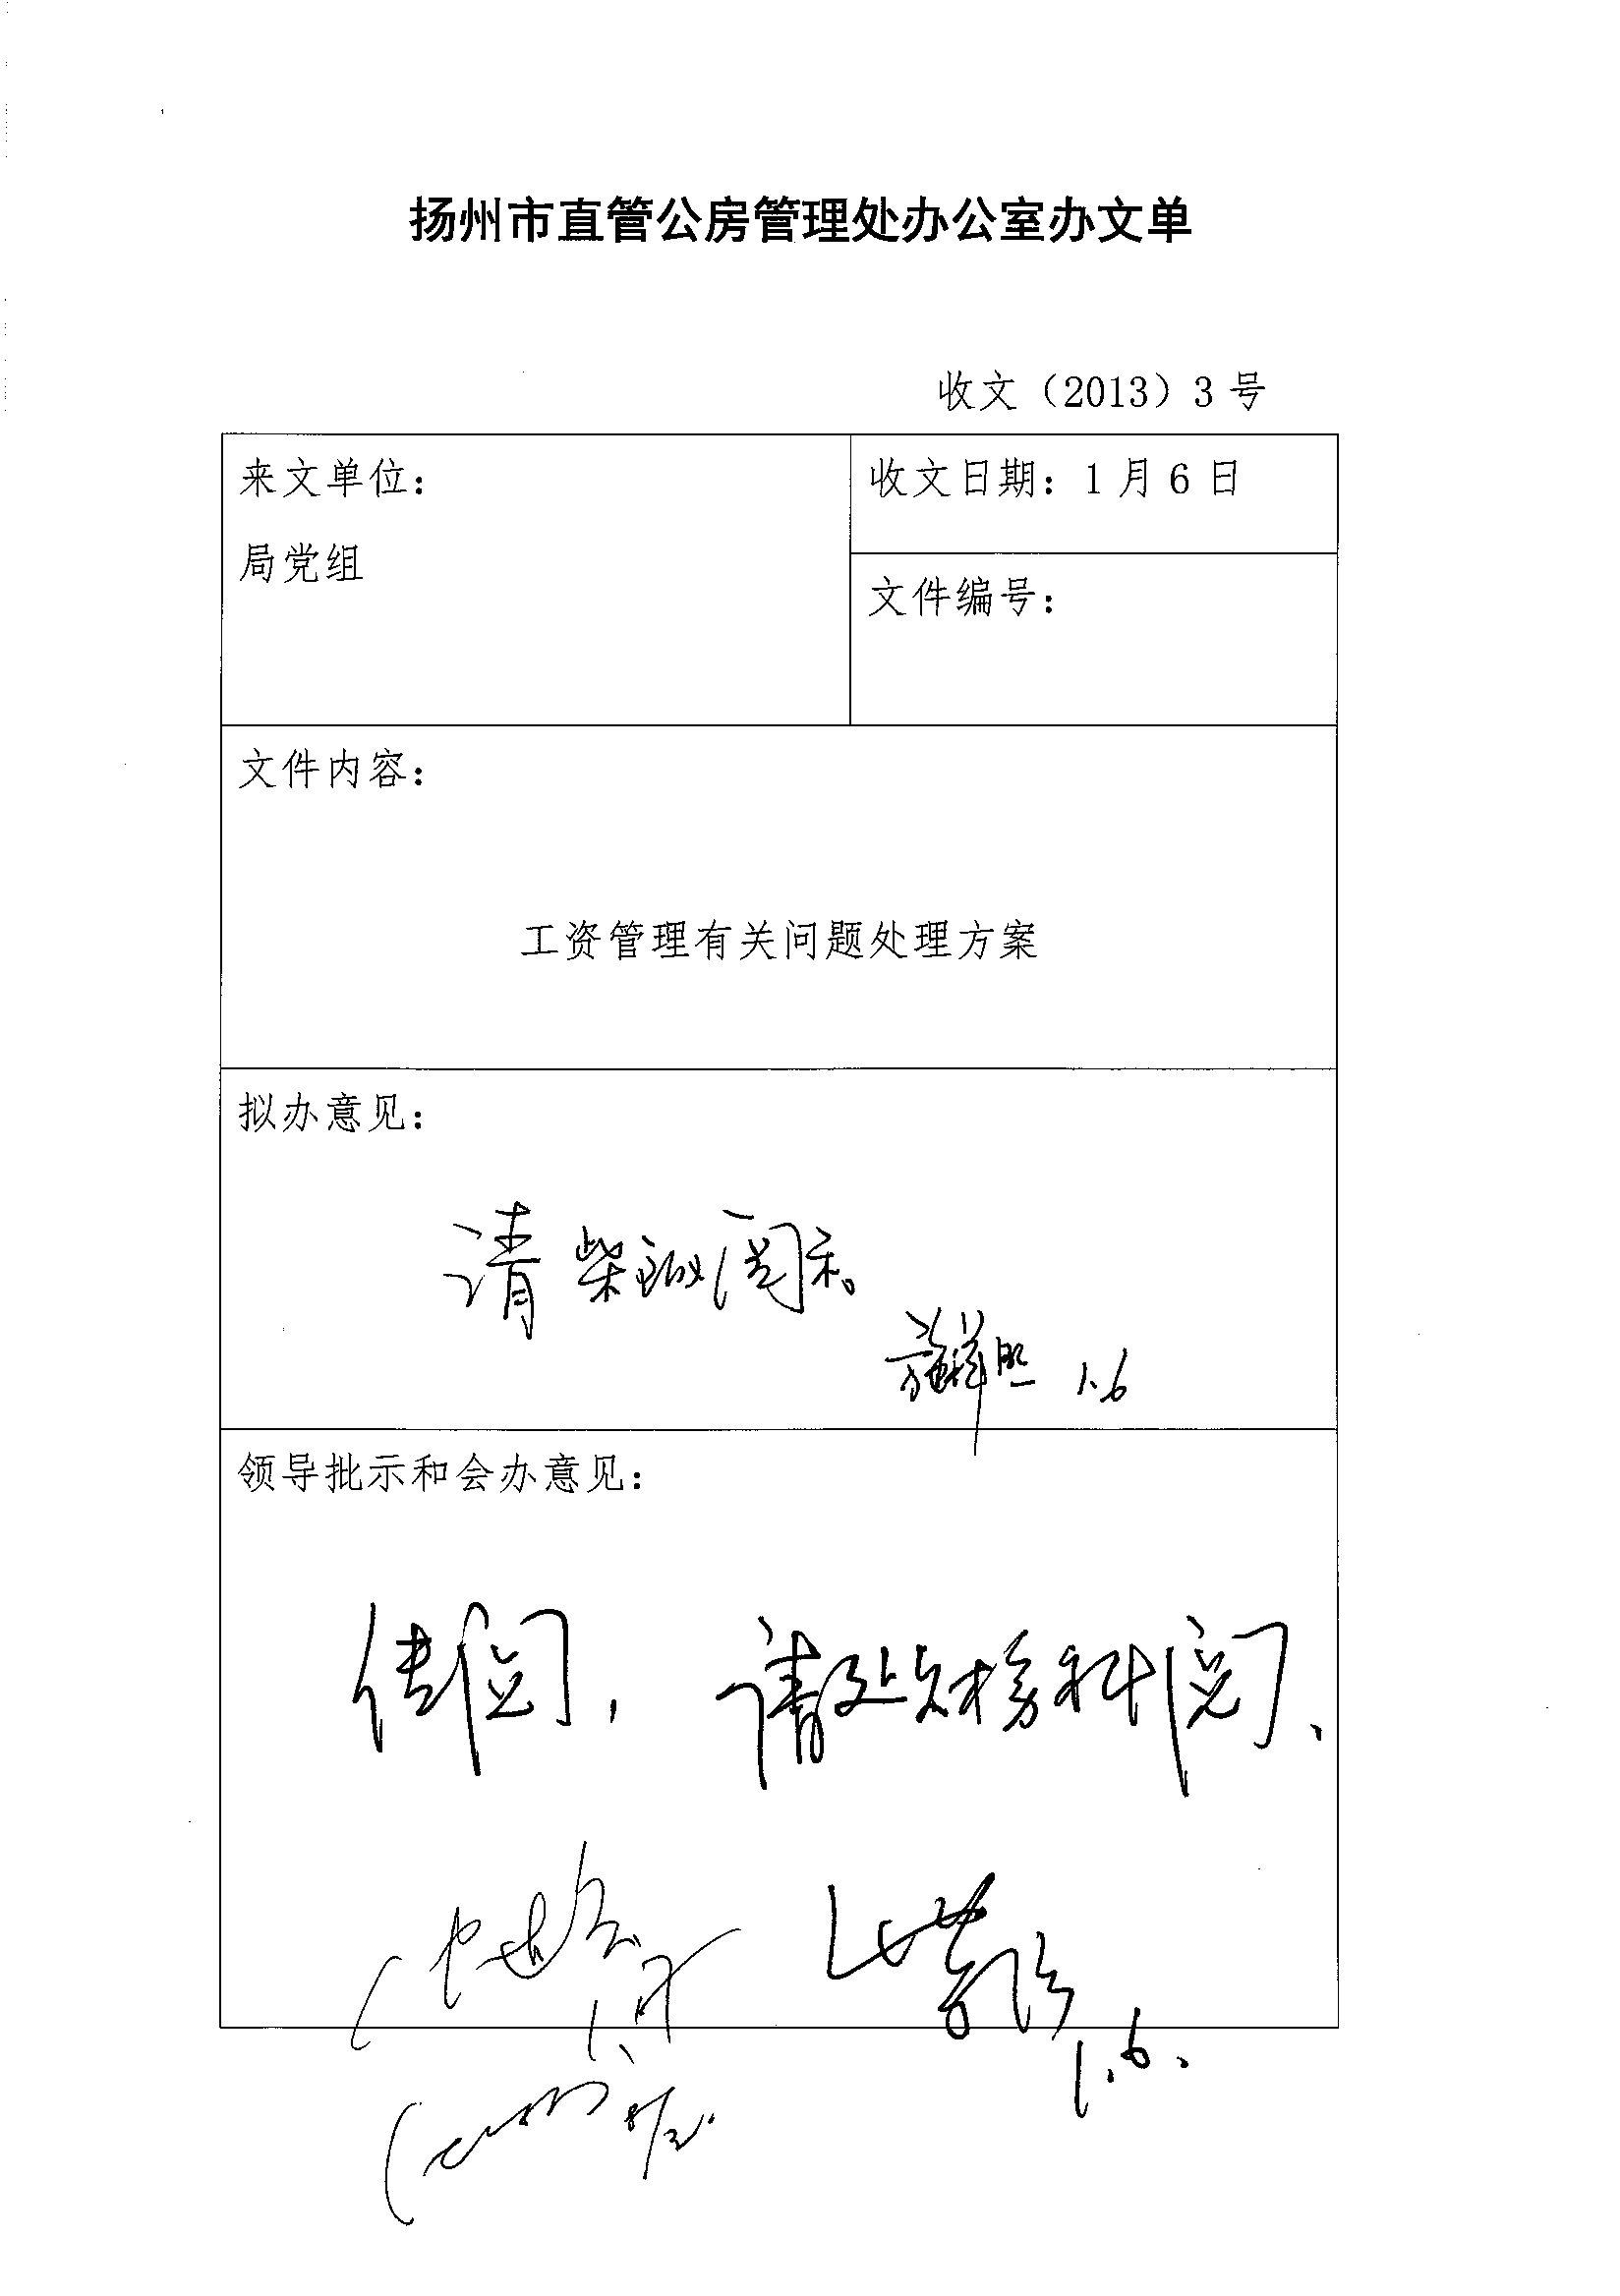 扬州市直管公房管理处办公室办文单
收文（2013）3号
来文单位：
局党组
收文日期：1月6日
文件编号：
文件内容：
工资管理有关问题处理方案
拟办意见：
请柴阅示。
1.6
领导批示和会办意见：
传阅，请处财务科阅、
1.6.